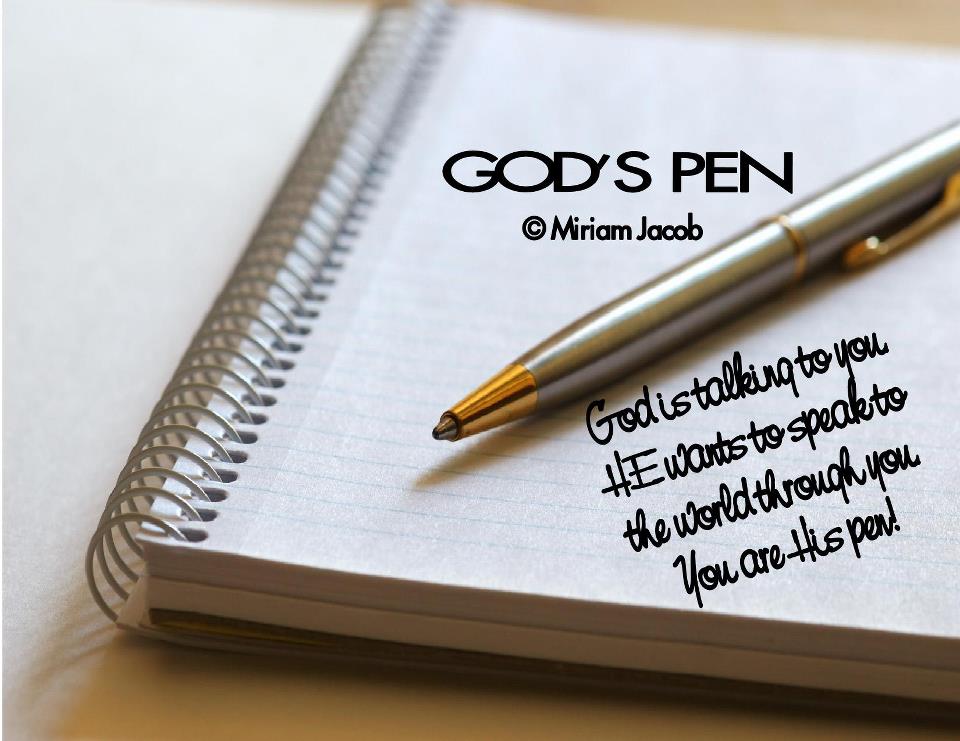 GOD'S PEN
© Miriam Jacob
God is talking to you.
HE wants to speak to
the world through you.
You are His pen!